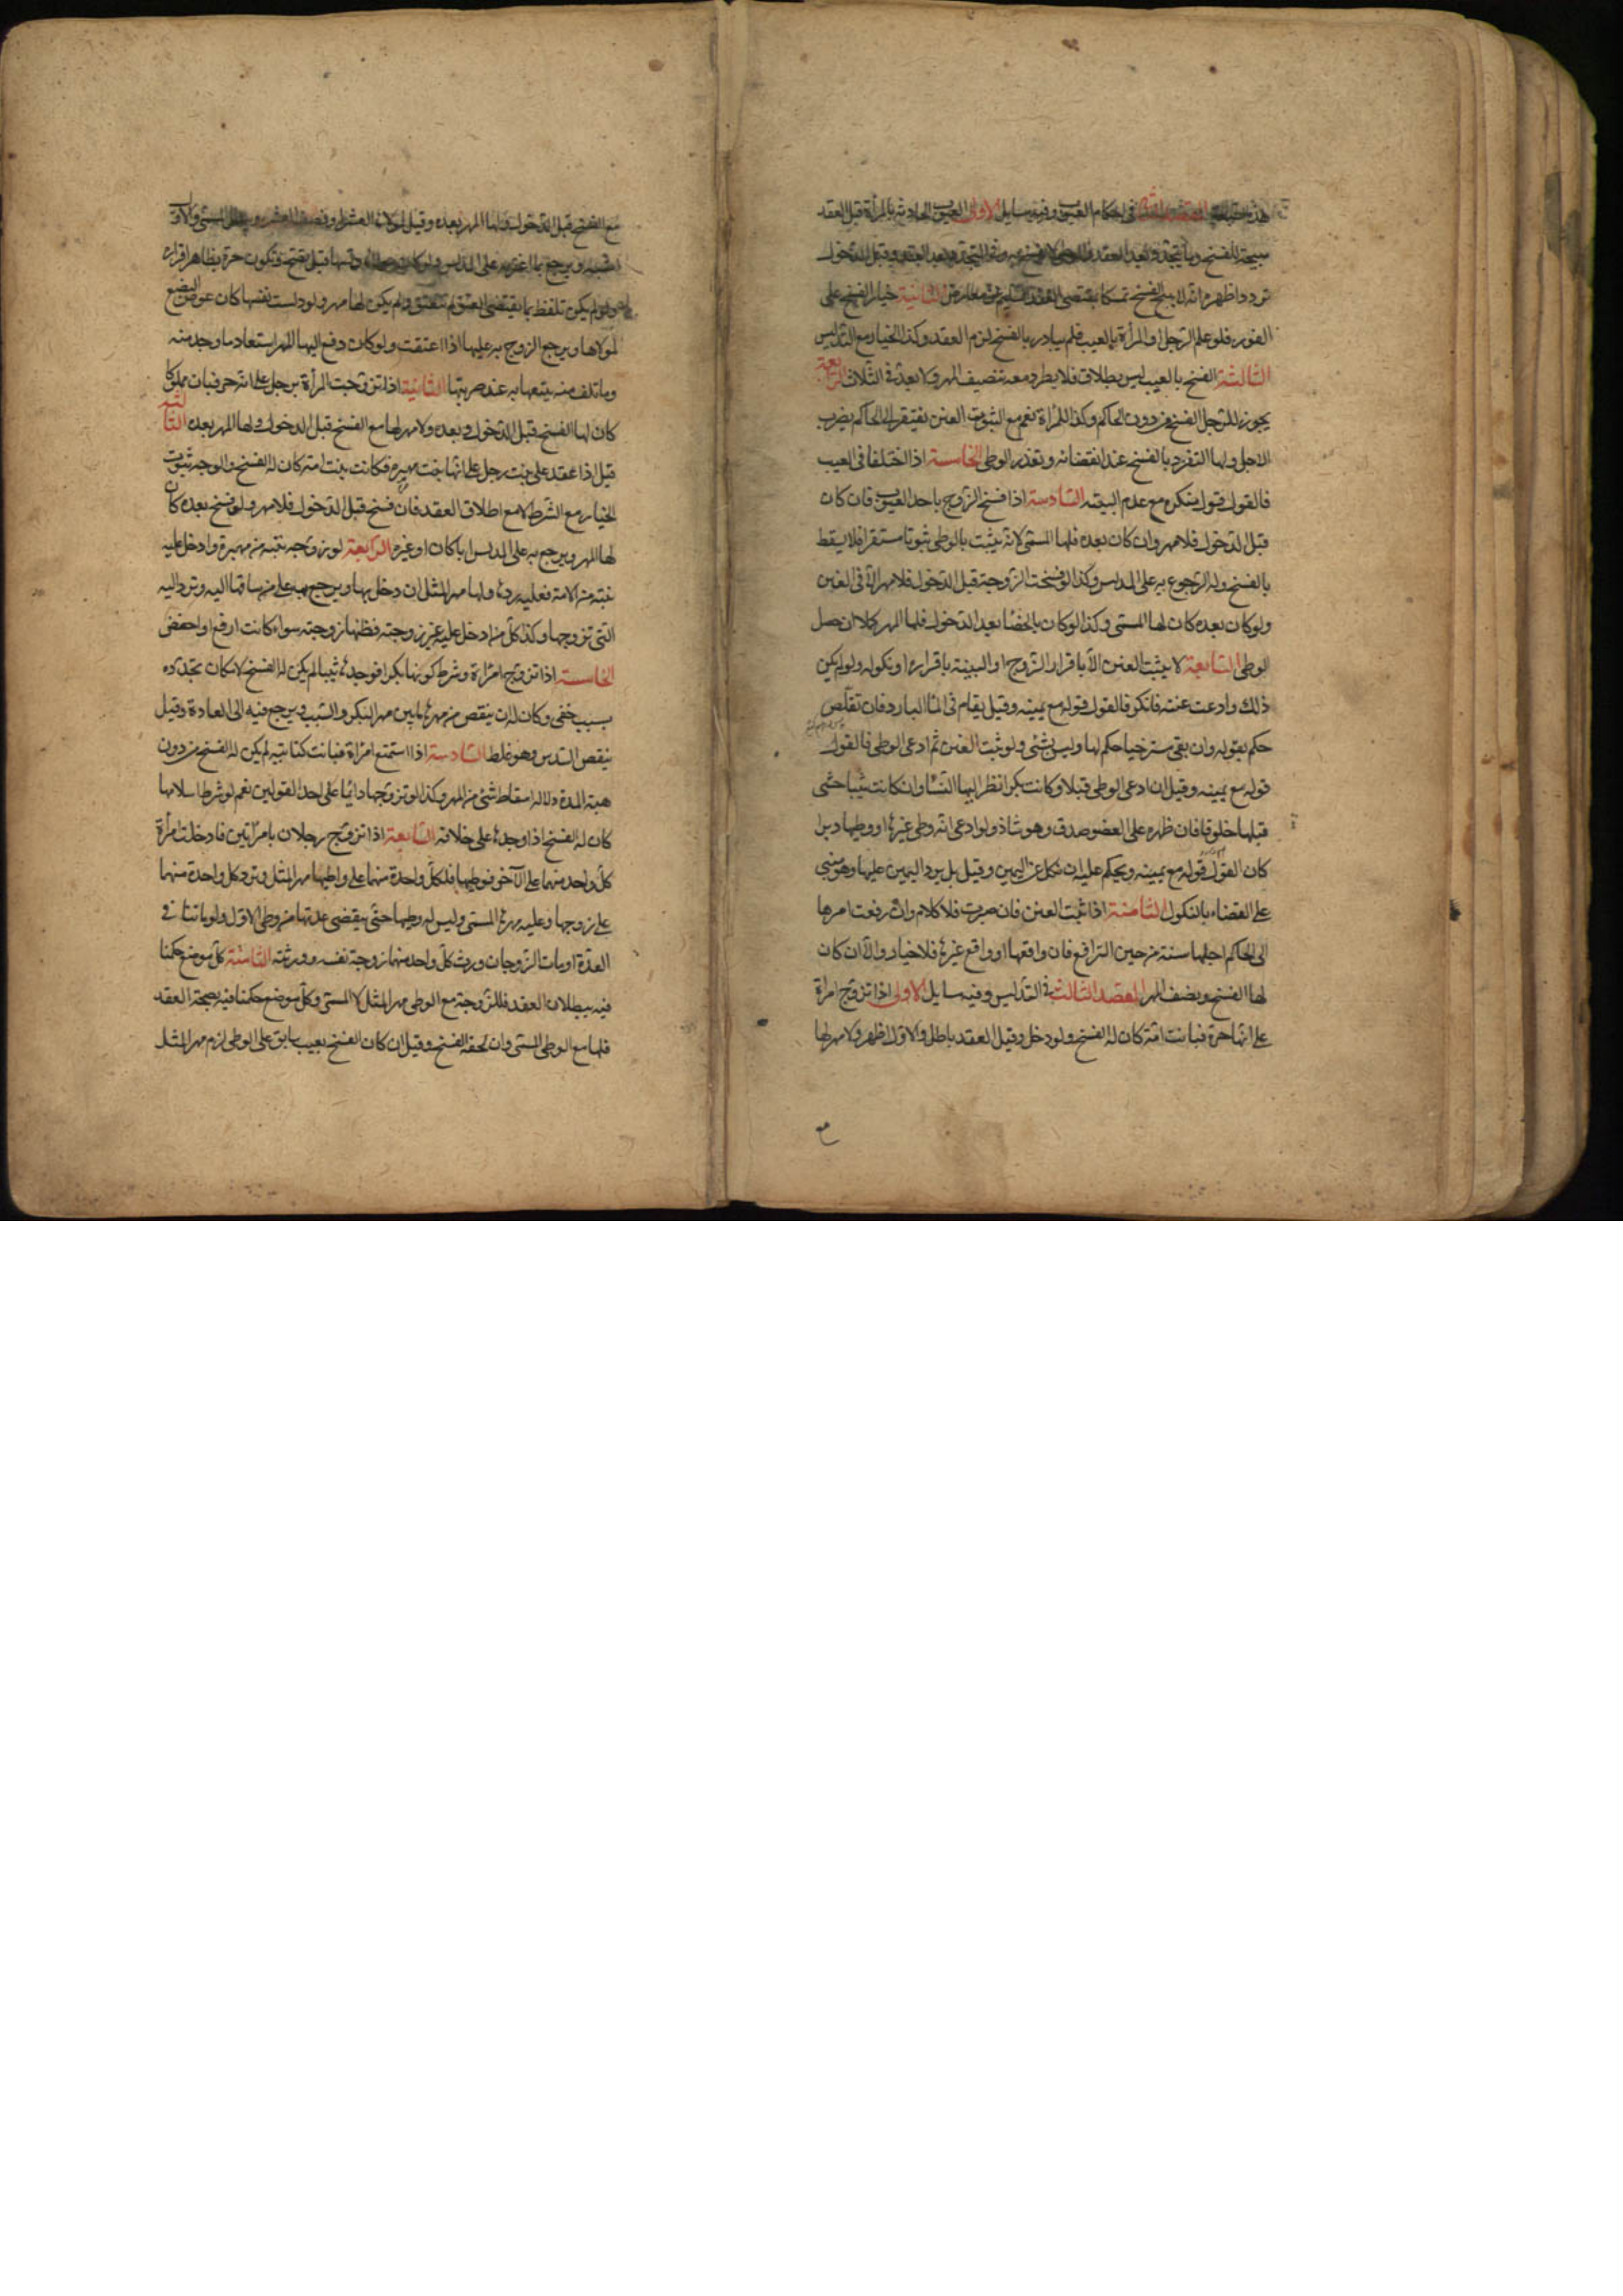 هذه حقيقة المقصد الثانى فى احكام العيوب وفيه مسايل الاولى العيوب الحادثة بالمرأة قبل العقد
مبيحة للفسخ وما يتجدد بعد العقد والوطى لا يفسخ به وفى المتجدد بعد العقد وقبل الدخول
تردد اظهره انه لا يبيح الفسخ تمسكا بمقتضى العقد السليم عن معارض الثانية خيار الفسخ على
الفور فلو علم الرجل او المرأة بالعيب فلم يبادر بالفسخ لزم العقد وكذا الخيار مع التدليس
الثالثة الفسخ بالعيب ليس بطلاق فلا يطرد معه تنصيف المهر ولا يعد فى الثلاث الرابعة
يجوز للرجل الفسخ من دون الحاكم وكذا للمرأة نعم مع ثبوت العنن يفتقر الى الحاكم لضرب
الاجل ولها التفرد بالفسخ عند انقضائه وتعذر الوطى الخامسة اذا اختلفا فى العيب
فالقول قول منكره مع عدم البينة السادسة اذا فسخ الزوج باحد العيوب فان كان
قبل الدخول فلا مهر وان كان بعده فلها المسمى لانه يثبت بالوطى ثبوتا مستقرا فلا يسقط
بالفسخ وله الرجوع به على المدلس وكذا لو فسخت الزوجة قبل الدخول فلا مهر الا فى العنن
ولو كان بعده كان لها المسمى وكذا لو كان بالخصا بعد الدخول فلها المهر كملا ان حصل
الوطى السابعة لا يثبت العنن الا باقرار الزوج او البينة باقراره او نكوله ولو لم يكن
ذلك وادعت عننه فانكر فالقول قوله مع يمينه وقيل يقام فى الماء البارد فان تقلص
حكم بقوله وان بقى مسترخيا حكم لها وليس بشئ ولو ثبت العنن ثم ادعى الوطى فالقول
قوله مع يمينه وقيل ان ادعى الوطى قبلا وكانت بكرا نظر اليها النساء وان كانت ثيبا حشى
قبلها خلوقا فان ظهر على العضو صدق وهو شاذ ولو ادعى انه وطى غيرها او وطيها دبرا
كان القول قوله مع يمينه ويحكم عليه ان نكل عن اليمين وقيل بل يرد اليمين عليها وهو مبنى
على القضاء بالنكول الثامنة اذا ثبت العنن فان صبرت فلا كلام وان رفعت امرها
الى الحاكم اجلها سنة من حين الترافع فان واقعها او واقع غيرها فلا خيار والا كان
لها الفسخ ونصف المهر المقصد الثالث فى التدليس وفيه مسايل الاولى اذا تزوج امرأة
على انها حرة فبانت امة كان له الفسخ ولو دخل وقيل العقد باطل والاول اظهر ولا مهر لها
مع الفسخ قبل الدخول ولها المهر بعده وقيل لمولاها العشر او نصف العشر ويبطل المسمى والاول
اشبه ويرجع بما اغترمه على المدلس ولو كان مولاها دلسها قيل يصح وتكون حرة بظاهر اقراره
ولو لم يكن تلفظ بما يقتضى العتق لم تعتق ولم يكن لها مهر ولو دلست نفسها كان عوض البضع
لمولاها ويرجع الزوج به عليها اذا اعتقت ولو كان دفع اليها المهر استعاد ما وجد منه
وما تلف منه يتبعها به عند حريتها الثانية اذا تزوجت المرأة برجل على انه حر فبان مملوكا
كان لها الفسخ قبل الدخول وبعده ولا مهر لها مع الفسخ قبل الدخول ولها المهر بعده الثالثة
قيل اذا عقد على بنت رجل على انها بنت مهيرة فكانت بنت امة كان له الفسخ والوجه ثبوت
الخيار مع الشرط لا مع اطلاق العقد فان فسخ قبل الدخول فلا مهر ولو فسخ بعده كان
لها المهر ويرجع به على المدلس ابا كان او غيره الرابعة لو زوجه بنته من مهيرة وادخل عليه
بنته من الامة فعليه ردها ولها مهر المثل ان دخل بها ويرجع به على من ساقها اليه وترد اليه
التى تزوجها وكذا كل من ادخل عليه غير زوجته فظنها زوجته سواء كانت ارفع او اخفض
الخامسة اذا تزوج امرأة وشرط كونها بكرا فوجدها ثيبا لم يكن له الفسخ لامكان تجدده
بسبب خفى وكان له ان ينقص من مهرها ما بين مهر البكر والثيب ويرجع فيه الى العادة وقيل
ينقص السدس وهو غلط السادسة اذا استمتع امرأة فبانت كتابية لم يكن له الفسخ من دون
هبة المدة ولا له اسقاط شئ من المهر وكذا لو تزوجها دائما على احد القولين نعم لو شرط اسلامها
كان له الفسخ اذا وجدها على خلافه السابعة اذا تزوج رجلان بامرأتين فادخلت امرأة
كل واحد منهما على الاخر فوطيها فلكل واحدة منهما على واطيها مهر المثل وترد كل واحدة منهما
على زوجها وعليه مهرها المسمى وليس له وطيها حتى ينقضى عدتها من وطى الاول ولو ماتتا فى
العدة او مات الزوجان ورث كل واحد منهما زوجة نفسه وورثته الثامنة كل موضع حكمنا
فيه ببطلان العقد فللزوجة مع الوطى مهر المثل لا المسمى وكل موضع حكمنا فيه بصحة العقد
فلها مع الوطى المسمى وان لحقه الفسخ وقيل ان كان الفسخ بعيب سابق على الوطى لزم مهر المثل